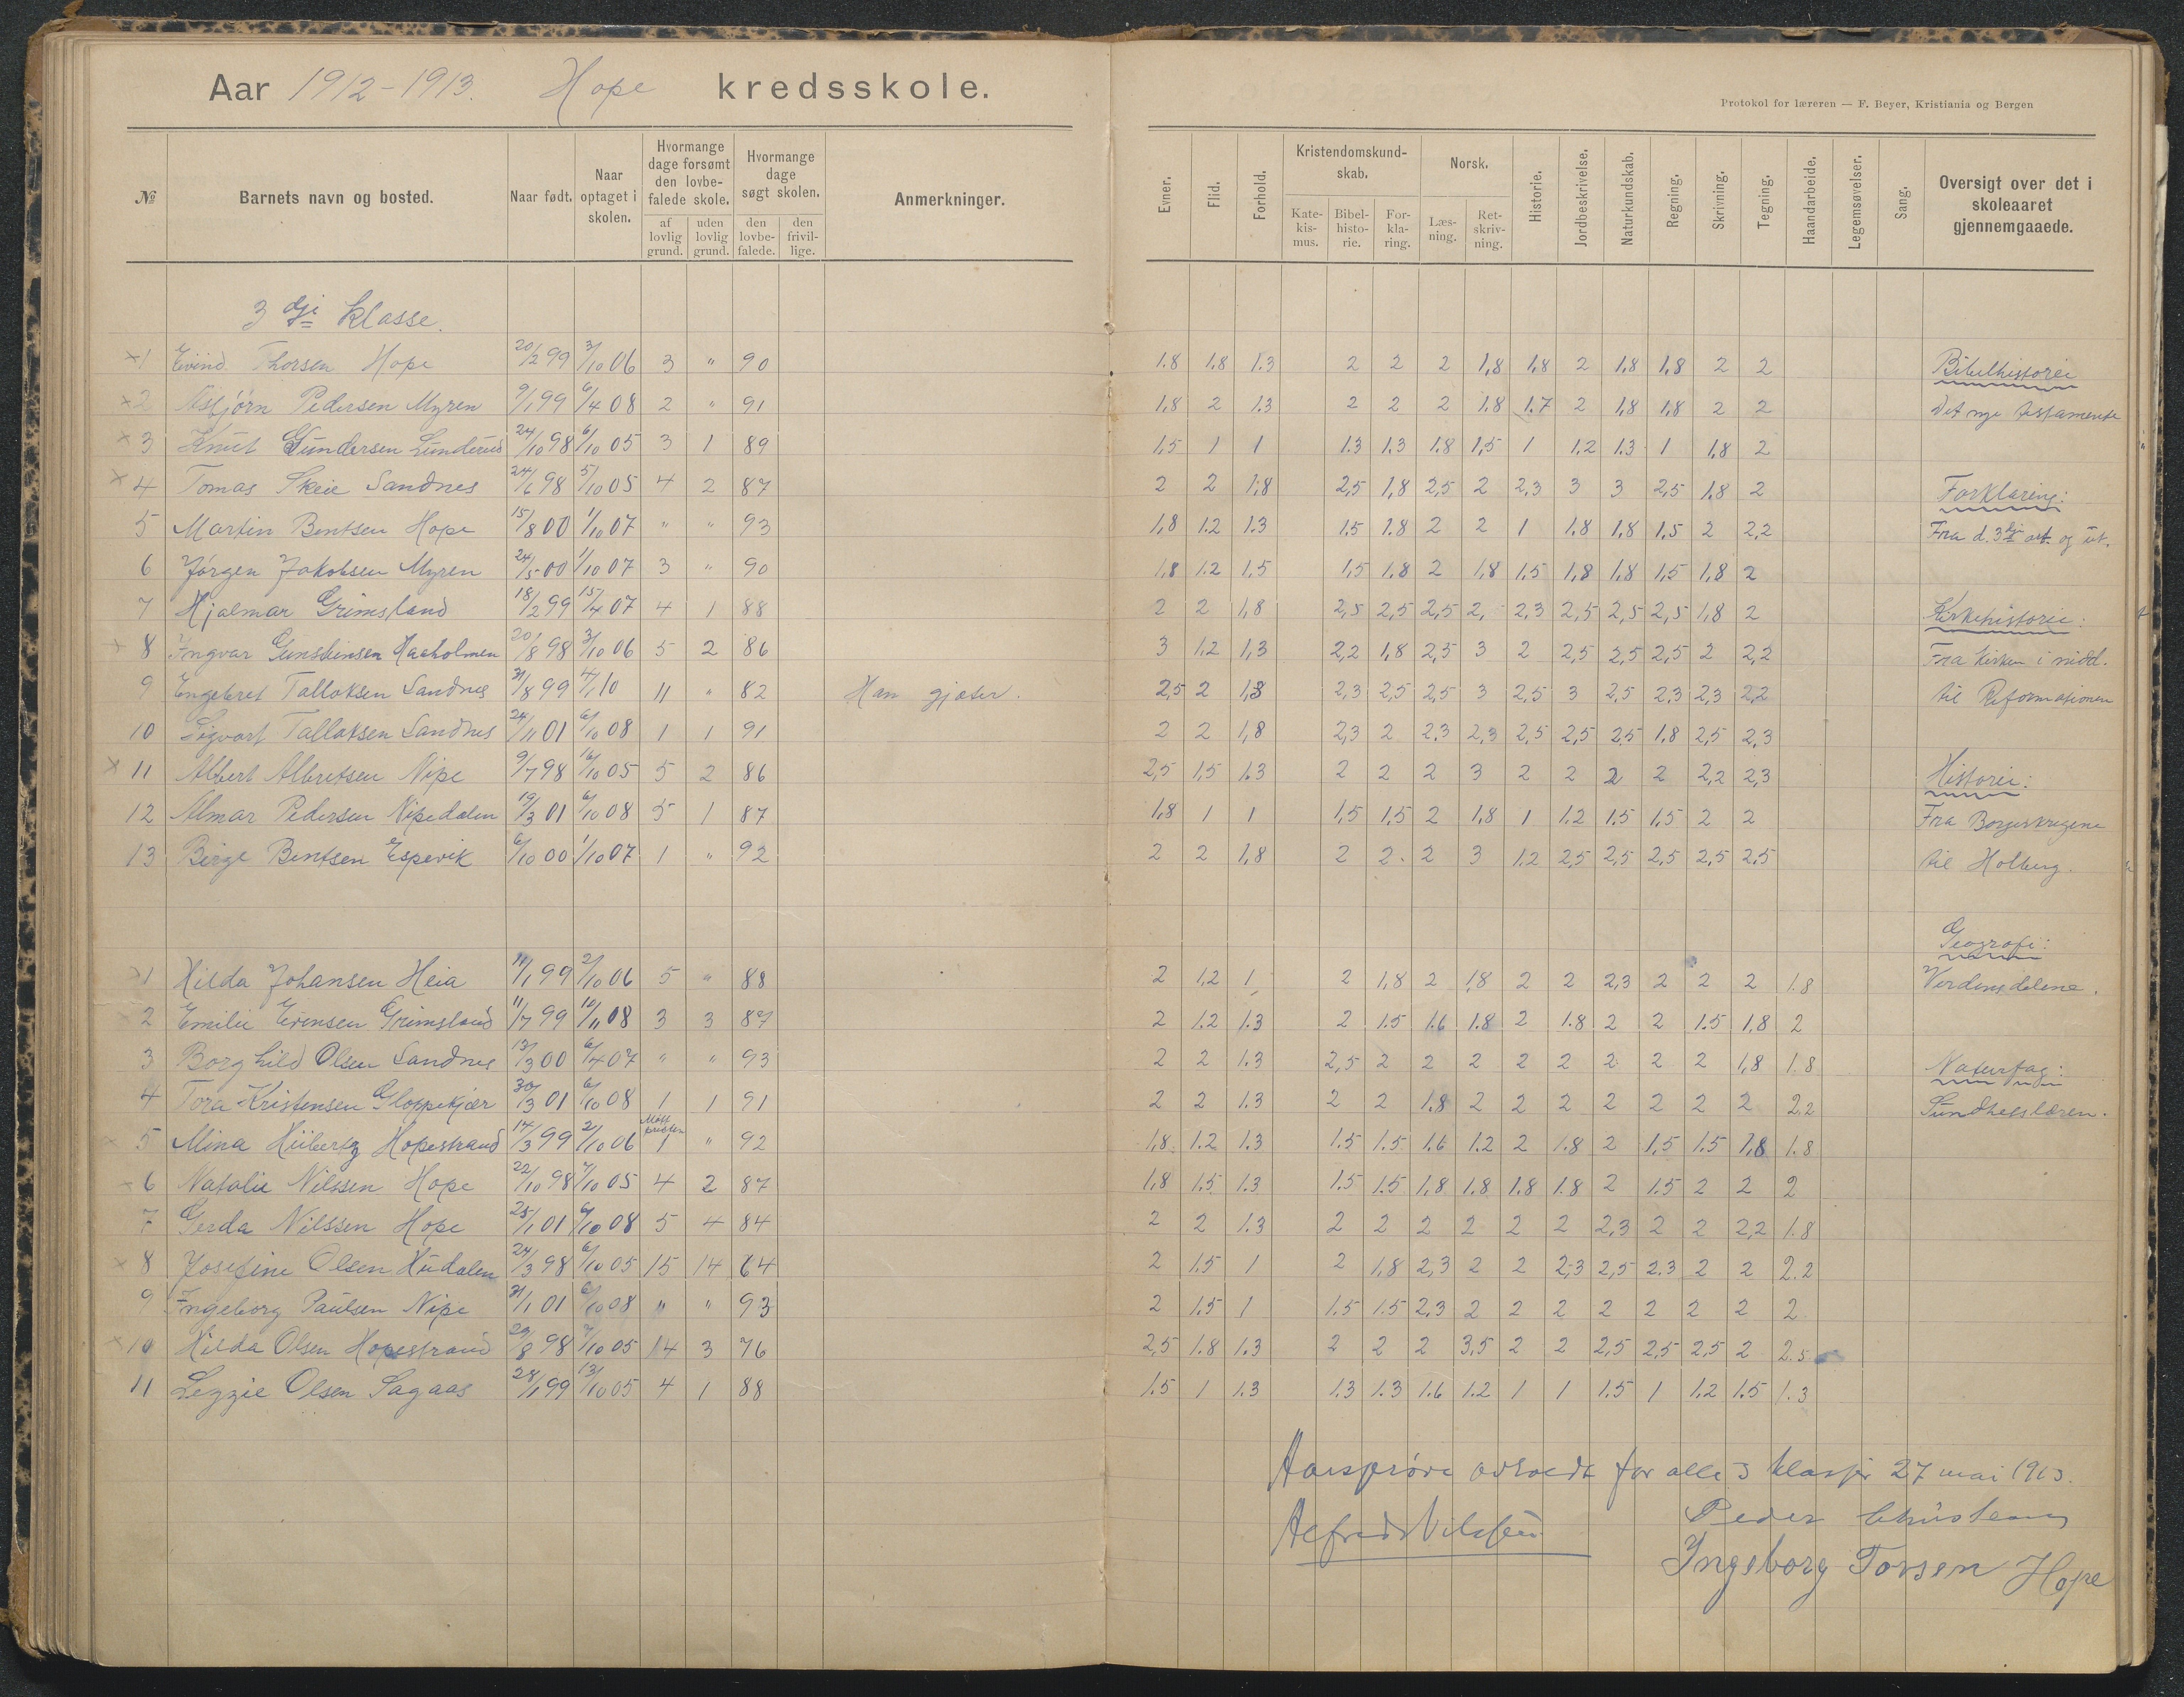 Aar 1912-1913. Hope kredsskole.
Protokol for læreren — F. Beyer, Kristiania og Bergen
№ Barnets navn og bosted. Naar født. Naar optaget i skolen. Hvormange dage forsømt den lovbefalede skole. af lovlig grund. uden lovlig grund. Hvormange dage søgt skolen. den lovbefalede. den frivillige. Anmerkninger.
Evner. Flid. Forhold. Kristendomskundskab. Katekismus. Bibelhistorie. Forklaring. Norsk. Læsning. Retskrivning. Historie. Jordbeskrivelse. Naturkundskab. Regning. Skrivning. Tegning. Haandarbeide. Legemsøvelser. Sang. Oversigt over det i skoleaaret gjennemgaaede.
3 dji klasse.
1 Eivind Thorsen Hope 20/2 99 3/10 06 3 " 90 1.8 1.8 1.3 2 2 2 1,8 1.8 2 1,8 1,8 2 2 Bibelhistorie
2 Asbjørn Pedersen Myren 9/1 99 6/4 08 2 " 91 1,8 2 1.3 2 2 2 1.8 1.7 2 1,8 1,8 2 2 Det nye testamente
3 Knut Gundersen Lunderød 24/10 98 6/10 05 3 1 89 1,5 1 1 1.3 1.3 1.8 1,5 1 1.2 1.3 1 1,8 2
4 Tomas Skeie Sandnes 24/6 98 5/10 05 4 2 87 2 2 1,8 2,5 1,8 2,5 2 2,3 3 3 2,5 1,8 2 Forklaring:
5 Martin Bentsen Hope 15/8 00 1/10 07 " " 93 1,8 1.2 1.3 1.5 1.8 2 2 1 1.8 1,8 1.5 2 2,2 Fra d. 3dji art. og ut.
6 Jørgen Jakobsen Myren 24/5 00 1/10 07 3 " 90 1,8 1.2 1,5 1,5 1.8 2 1,8 1.5 1,8 1.8 1,5 1,8 2
7 Hjalmar Grimsland 18/2 99 15/4 07 4 1 88 2 2 1,8 2,5 2,5 2,5 2, 2,3 2,5 2,5 2,5 1,8 2 Kirkehistorie:
8 Ingvar Gunstinsen Haaholmen 20/8 98 3/10 06 5 2 86 3 1.2 1,3 2,2 1,8 2,5 3 2 2,5 2,5 2,5 2 2,2 Fra kirken i midd.
9 Engebret Tallaksen Sandnes 31/8 99 4/1 10 11 " 82 Han gjæter. 2,5 2 1,8 2,3 2,5 2,5 3 2,5 3 2,5 2.3 2,3 2,2 til Reformationen
10 Sigvart Tallaksen Sandnes 24/11 01 6/10 08 1 1 91 2 2 1,8 2,3 2 2.3 2,3 2,5 2,5 2,5 1.8 2,5 2,3
11 Albert Albretsen Nipe 9/7 98 16/10 05 5 2 86 2,5 1,5 1.3 2 2 2 3 2 2 2 2 2,2 2,3 Historie:
12 Almar Pedersen Nipedalen 19/3 01 6/10 08 5 1 87 1,8 1 1 1,5 1,5 2 1,8 1 1.2 1.5 1,5 2 2 Fra Borgerkrigene
13 Birge Bentsen Espevik 6/10 00 1/10 07 1 " 92 2 2 1,8 2 2 2 3 1.2 2,5 2,5 2,5 2,5 2,5 til Holberg.
Geografi:
1 Hilda Johansen Heia 11/1 99 2/10 06 5 " 88 2 1,2 1 2 1,8 2 1,8 2 2 2,3 2 2 2 1.8 Verdensdelene.
2 Emilie Evensen Grimsland 11/7 99 10/11 08 3 3 87 2 1.2 1.3 2 1.5 1.6 1.8 2 1.8 2 2 1.5 1,8 2
3 Borghild Olsen Sandnes 13/3 00 6/4 07 " " 93 2 2 1.3 2,5 2 2 2 2 2 2 2 2 1,8 1.8 Naturfag:
4 Tora Kristensen Gloppekjær 30/3 01 6/10 08 1 1 91 2 2 1.3 2 2 1.8 2 2 2 2 2 2 2 2.2 Sundhetslæren.
5 Mina Hübertz Hopestrand 14/3 99 2/10 06 1 " 92 1,8 1.2 1.3 1.5 1.5 1.6 1.2 2 1.8 2 1,5 1.5 1,8 1.8
6 Natalie Nilssen Hope 22/10 98 7/10 05 4 2 87 1,8 1.5 1.3 1.5 1.5 1,8 1.8 1.8 1.8 2 1.5 2 2 2
7 Gerda Nilssen Hope 25/1 01 6/10 08 5 4 84 2 2 1.3 2 2 2 2 2 2 2,3 2 2 2,2 1.8
8 Josefine Olsen Hudalen 24/3 98 6/10 05 15 14 64 2 1.5 1 2 1,8 2,3 2 2 2,3 2,5 2.3 2 2 2.2
9 Ingeborg Paulsen Nipe 31/1 01 6/10 08 " " 93 2 1.5 1 1.5 1.5 2,3 2 2 2 2 2 2 2 2
10 Hilda Olsen Hopestrand 29/8 98 7/10 05 14 3 76 2,5 1.8 1.3 2 2 2 3,5 2 2 2,5 2,5 2,5 2 2.5
11 Lezzie Olsen Sagaas 28/1 99 13/10 05 4 1 88 1.5 1 1.3 1.3 1.3 1.6 1.2 1 1 1.5 1 1.2 1.5 1.3
Aarsprøve avholdt for alle 3 klasser 27 mai 1913.
Alfred Nilssen Peder Christensen
Ingeborg Torsen Hope